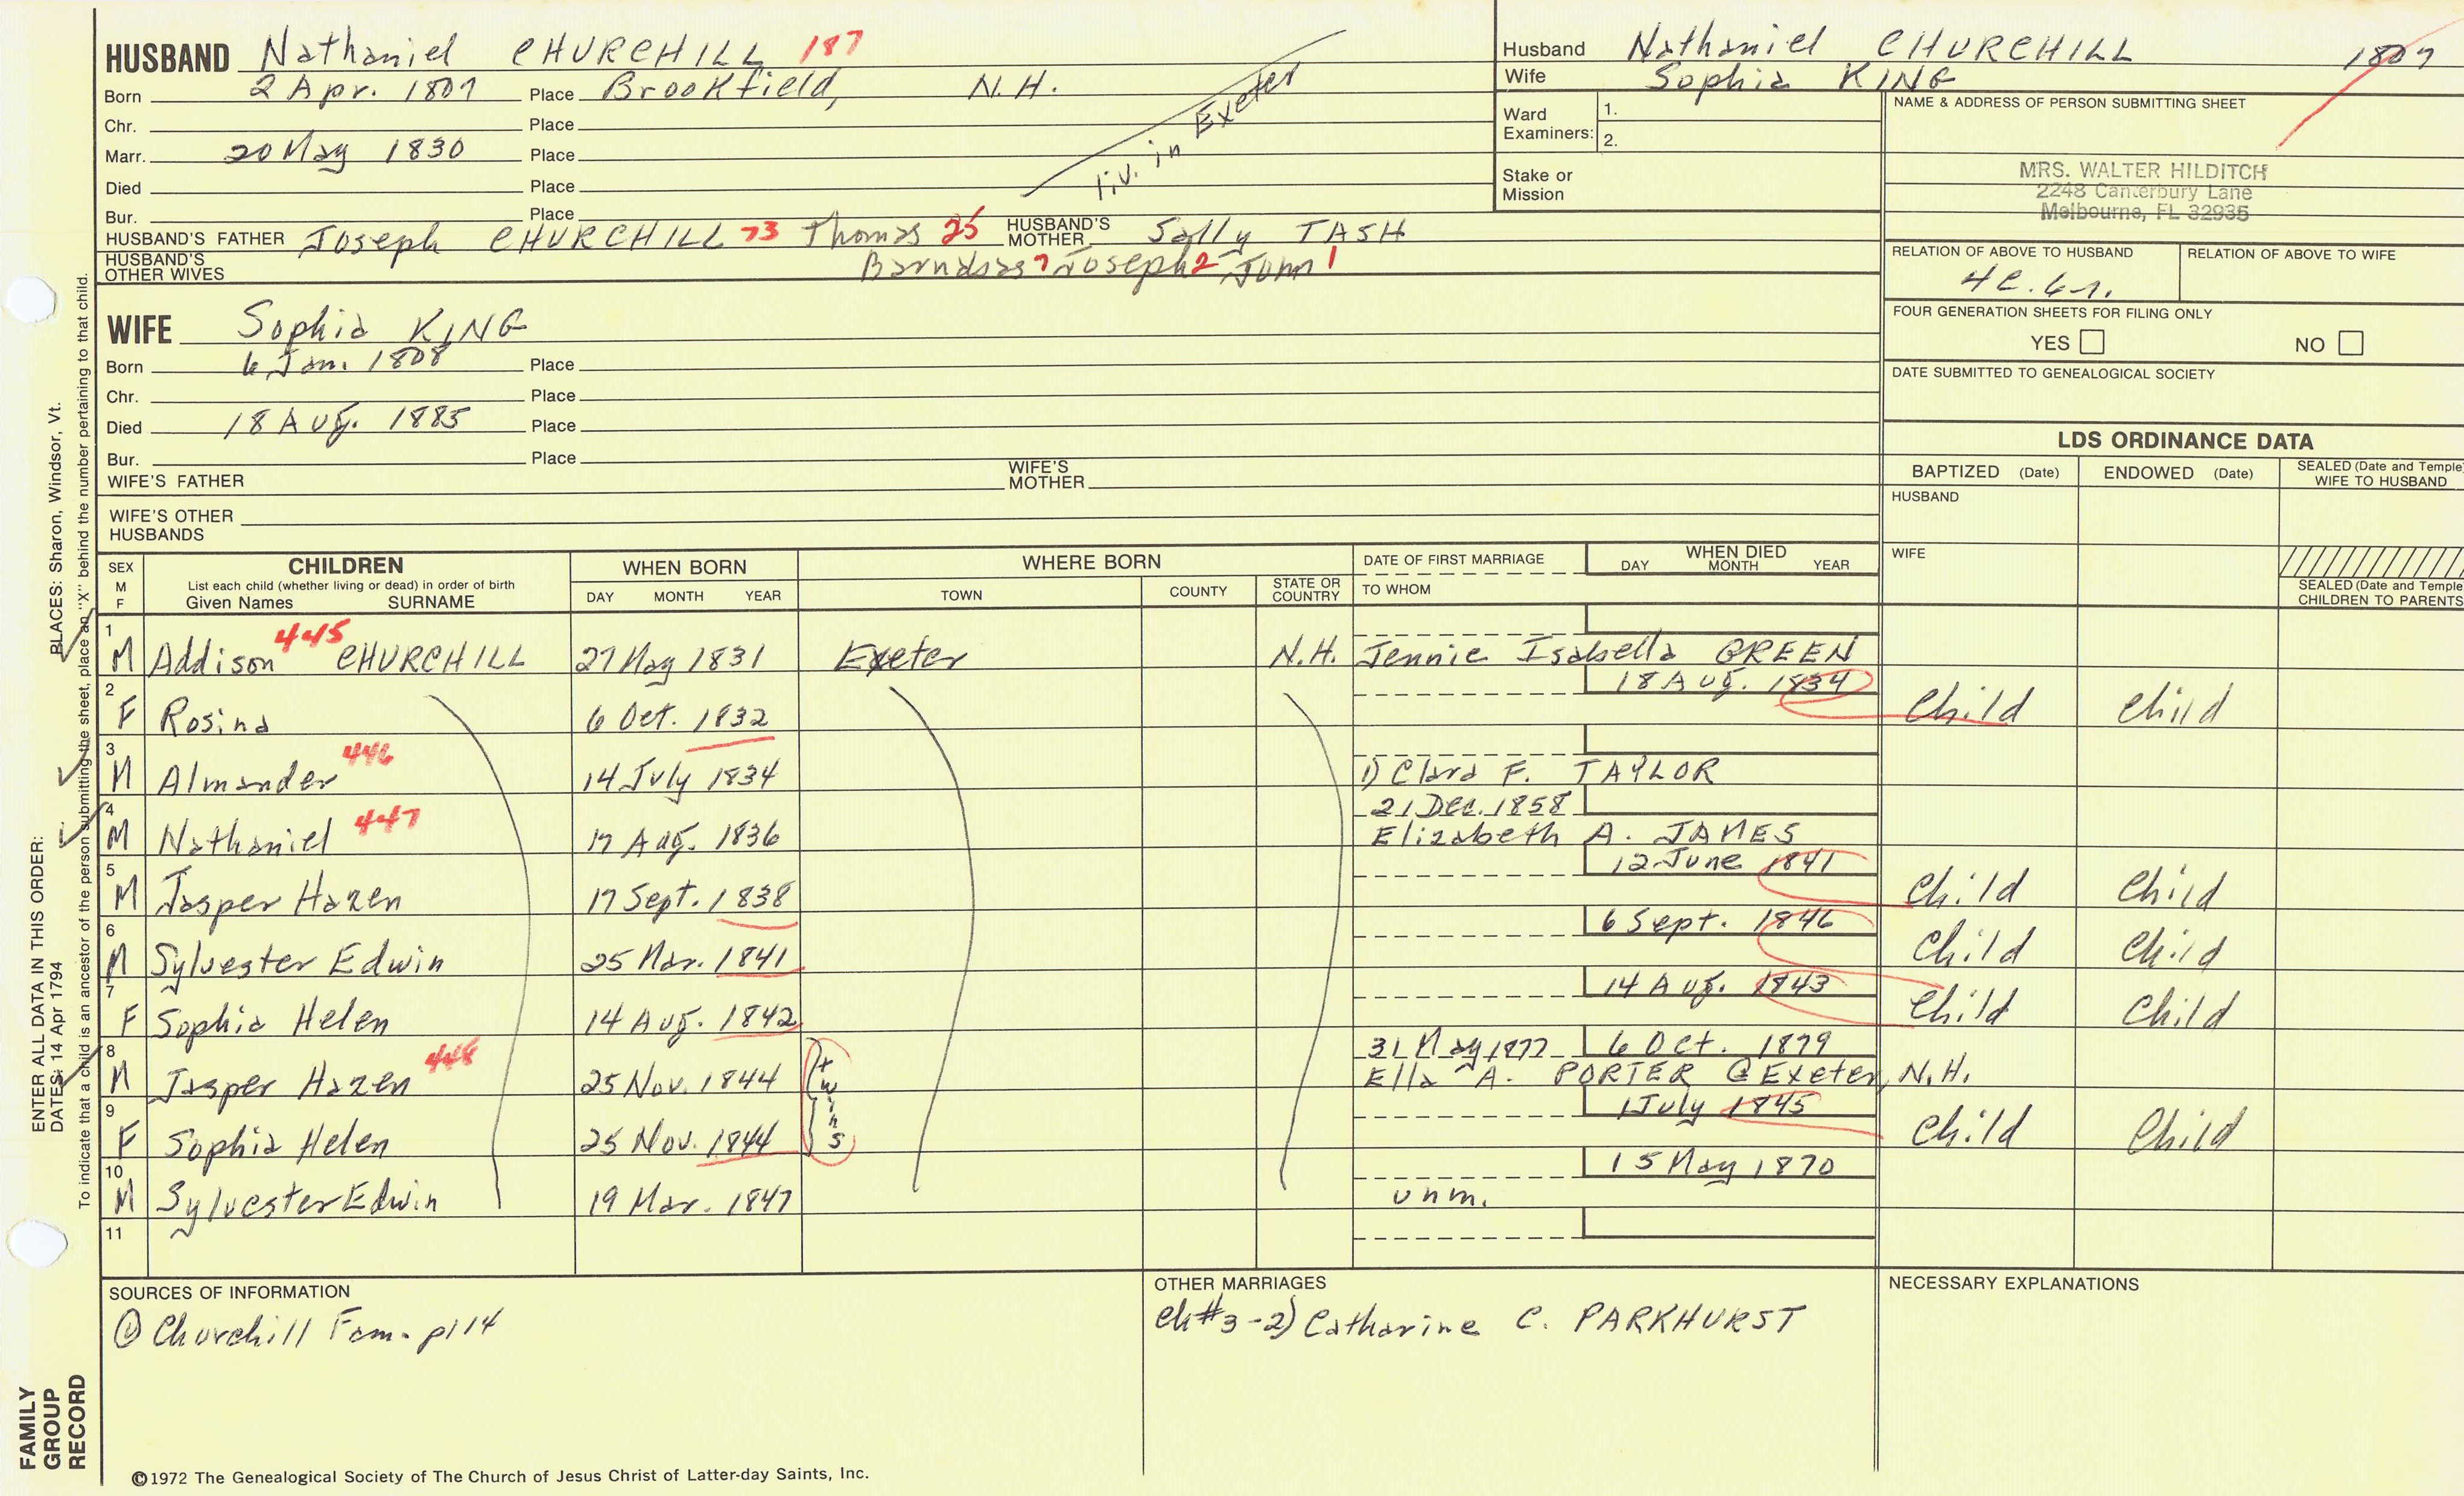 HUSBAND Nathaniel CHURCHILL 187
Born 2 Apr. 1807 Place Brookfield, N.H.
Chr. Place
Marr. 20 May 1830 Place
Died Place
Bur. Place
liv. in Exeter
HUSBAND'S FATHER Joseph CHURCHILL 73 Thomas 25 HUSBAND'S MOTHER Sally TASH
HUSBAND'S OTHER WIVES Barnabas 7 Joseph 2 John 1
WIFE Sophia KING
Born 6 Jan. 1808 Place
Chr. Place
Died 18 Aug. 1885 Place
Bur. Place
WIFE'S FATHER WIFE'S MOTHER
WIFE'S OTHER HUSBANDS
Husband Nathaniel CHURCHILL 1807
Wife Sophia KING
Ward Examiners: 1.
2.
Stake or Mission
NAME & ADDRESS OF PERSON SUBMITTING SHEET
MRS. WALTER HILDITCH
2248 Canterbury Lane
Melbourne, FL 32935
RELATION OF ABOVE TO HUSBAND RELATION OF ABOVE TO WIFE
4C.6r.
FOUR GENERATION SHEETS FOR FILING ONLY
YES NO
DATE SUBMITTED TO GENEALOGICAL SOCIETY
LDS ORDINANCE DATA
BAPTIZED (Date) ENDOWED (Date) SEALED (Date and Temple) WIFE TO HUSBAND
HUSBAND
WIFE
SEALED (Date and Temple) CHILDREN TO PARENTS
SEX M F CHILDREN WHEN BORN WHERE BORN DATE OF FIRST MARRIAGE WHEN DIED
List each child (whether living or dead) in order of birth
Given Names SURNAME DAY MONTH YEAR TOWN COUNTY STATE OR COUNTRY TO WHOM DAY MONTH YEAR
1 M Addison 445 CHURCHILL 27 May 1831 Exeter N.H. Jennie Isabella GREEN
2 F Rosina 6 Oct. 1832 18 Aug. 1834 Child Child
3 M Almander 446 14 July 1834 1) Clara F. TAYLOR
4 M Nathaniel 447 17 Aug. 1836 21 Dec. 1858 Elizabeth A. JAMES
5 M Jasper Hazen 17 Sept. 1838 12 June 1841 Child Child
6 M Sylvester Edwin 25 Mar. 1841 6 Sept. 1846 Child Child
7 F Sophia Helen 14 Aug. 1842 14 Aug. 1843 Child Child
8 M Jasper Hazen 448 25 Nov. 1844 twins 31 May 1877 6 Oct. 1879 Ella A. PORTER @ Exeter, N.H.
9 F Sophia Helen 25 Nov. 1844 1 July 1845 Child Child
10 M Sylvester Edwin 19 Mar. 1847 15 May 1870 unm.
11
SOURCES OF INFORMATION
① Churchill Fam. p114
OTHER MARRIAGES
Ch#3-2) Catharine C. PARKHURST
NECESSARY EXPLANATIONS
©1972 The Genealogical Society of The Church of Jesus Christ of Latter-day Saints, Inc.
ENTER ALL DATA IN THIS ORDER:
DATES: 14 Apr 1794 PLACES: Sharon, Windsor, Vt.
To indicate that a child is an ancestor of the person submitting the sheet, place an "X" behind the number pertaining to that child.
FAMILY GROUP RECORD